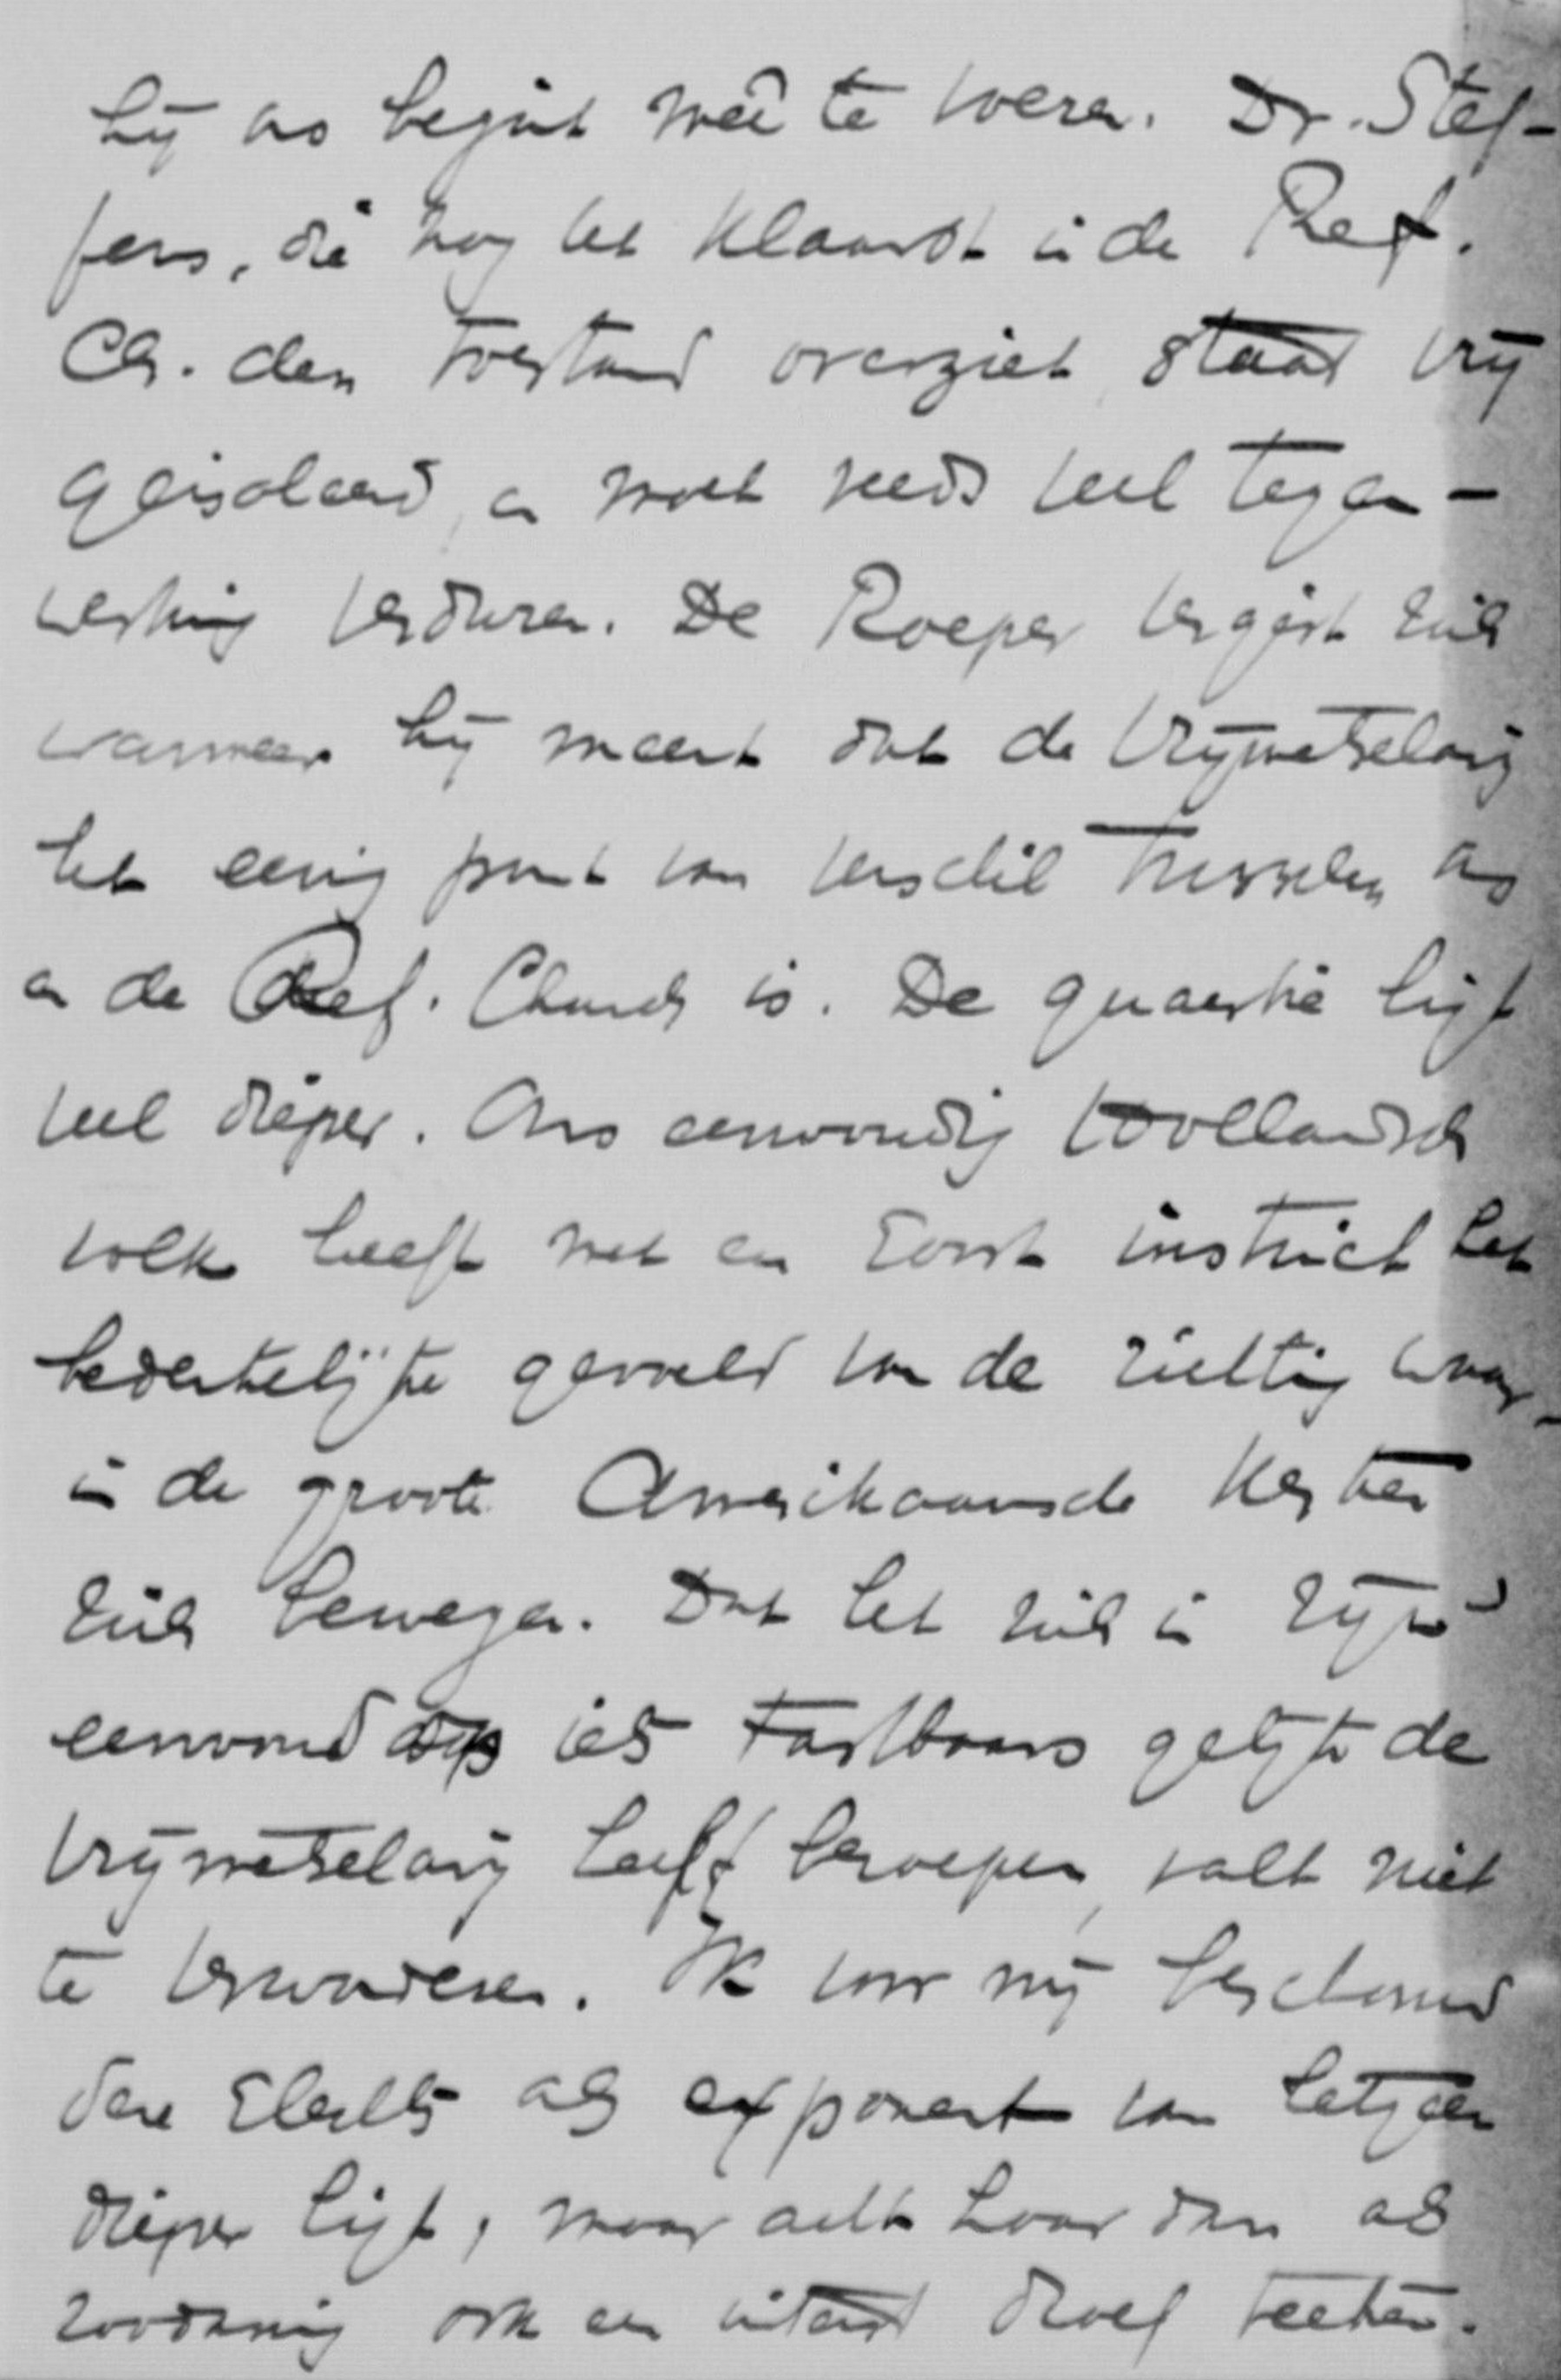 bij ons begint meê te voeren. Dr. Stef-
fens, die nog het klaarst in de Ref.
Ch. den toestand overziet, staat vrij
geïsoleerd, en moet reeds veel tegen-
werking verduren. De Roeper vergist zich
wanneer hij meent dat de Vrijmetselarij
het eenig punt van verschil tusschen ons
en de Ref. Church is. De quaestie ligt
veel dieper. Ons eenvoudig Hollandsch
volk heeft met een soort instinct het
bedenkelijke gevoeld van de richting waar-
in de groote Amerikaansche Kerken
zich bewegen. Dat het zich in zijn
eenvoud op iets tastbaars gelijk de
Vrijmetselarij heeft beroepen, valt niet
te verwonderen. Ik voor mij beschouw
deze slechts als exponent van hetgeen
dieper ligt, maar acht haar dan als
zoodanig ook een uiterst droef teeken.